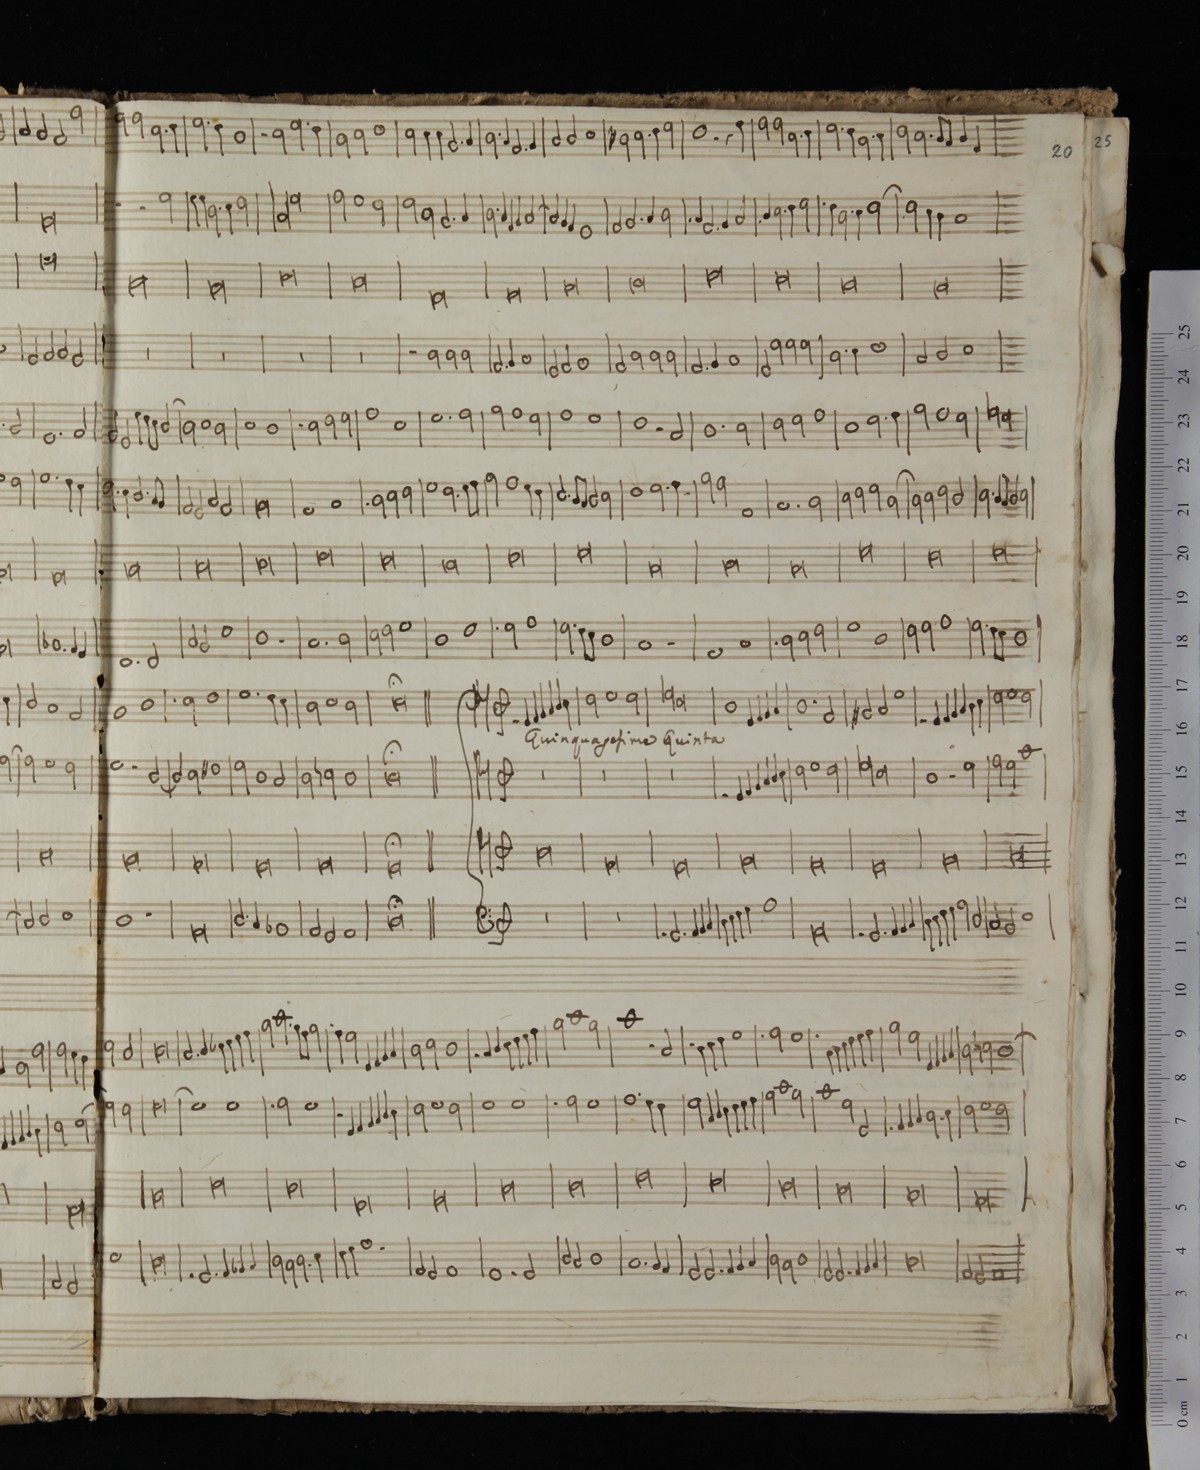 20
25
Quinquagesima Quinta
25
24
23
22
21
20
19
18
17
16
15
14
13
12
11
10
9
8
7
6
5
4
3
2
1
0 cm